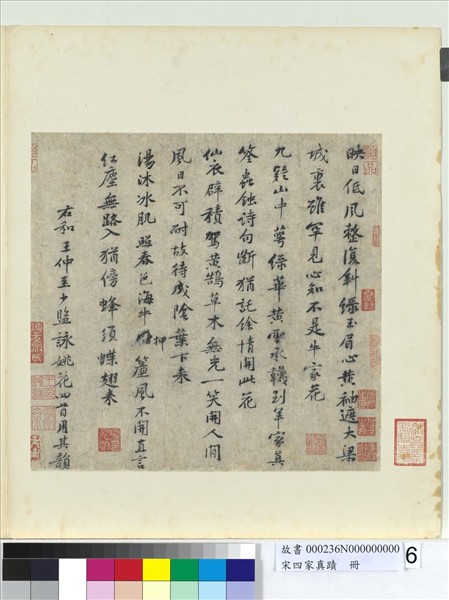 映日低風整復斜綠玉眉心黃袖遮大梁
城裏雖罕見心知不是牛家花
九疑山中萼綠華黃雲承韈到羊家真
筌蟲蝕詩句斷猶託餘情開此花
仙衣襞積駕黃鵠草木無光一笑開人間
風日不可耐故待成陰葉下來
湯沐冰肌照春色海牛壓簾風不開直言
押
紅塵無路入猶傍蜂須蝶翅來
右和王仲至少監詠姚花四首用其韻
故書 000236N000000000
宋四家真蹟 冊
6